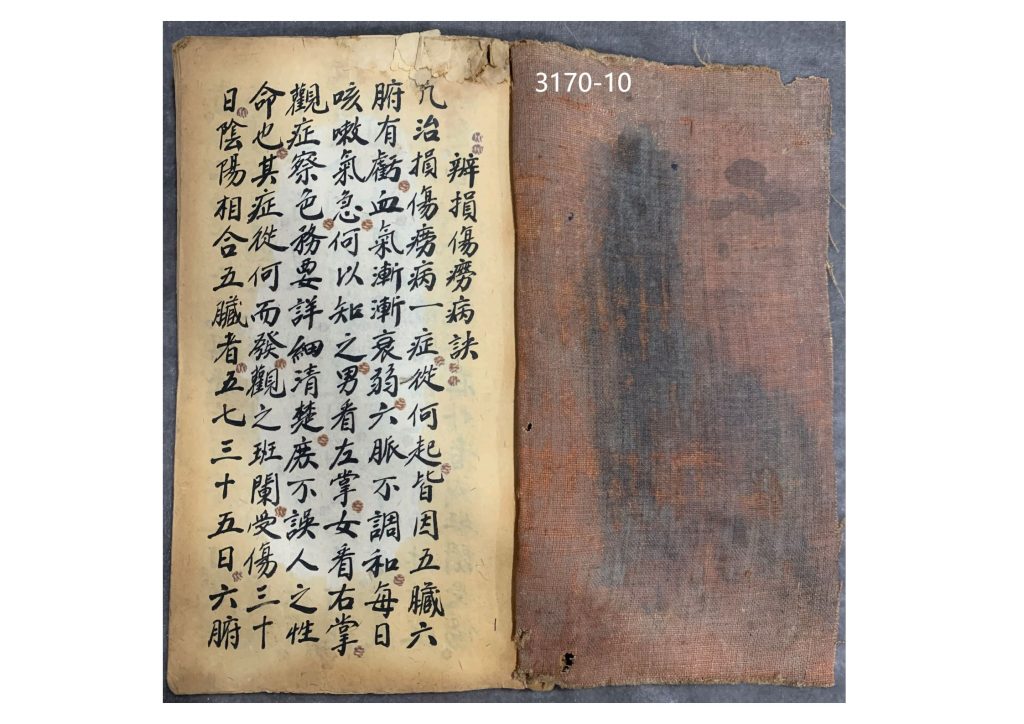 3170-10
辨損傷癆病訣
凡治損傷癆病一症從何起皆因五臟六
腑有虧血氣漸漸衰弱六脈不調和每日
咳嗽氣急何以知之男看左掌女看右掌
觀症察色務要詳細清楚庻不誤人之性
命也其症從何而發觀之班闌受傷三十
日陰陽相合五臟者五七三十五日六腑